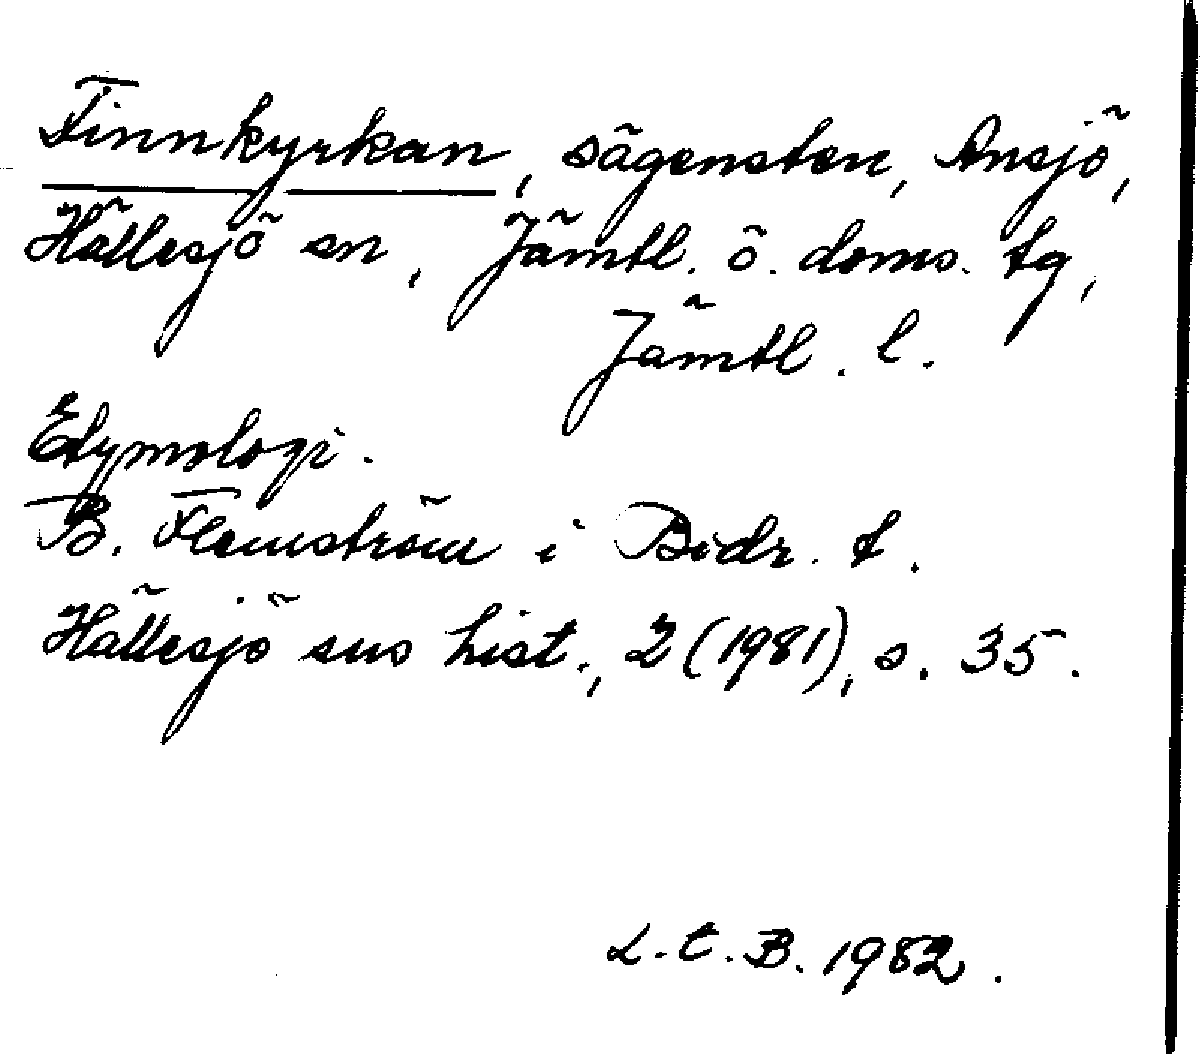 Finnkyrkan, sägensten, Ansjö,
Hällesjö sn, Jämtl. ö. doms. tg,
Jämtl. l.
Etymologi.
B. Flemström i Bidr. t.
Hällesjö sns hist., 2 (1981), s. 35.
L. E. B. 1982.